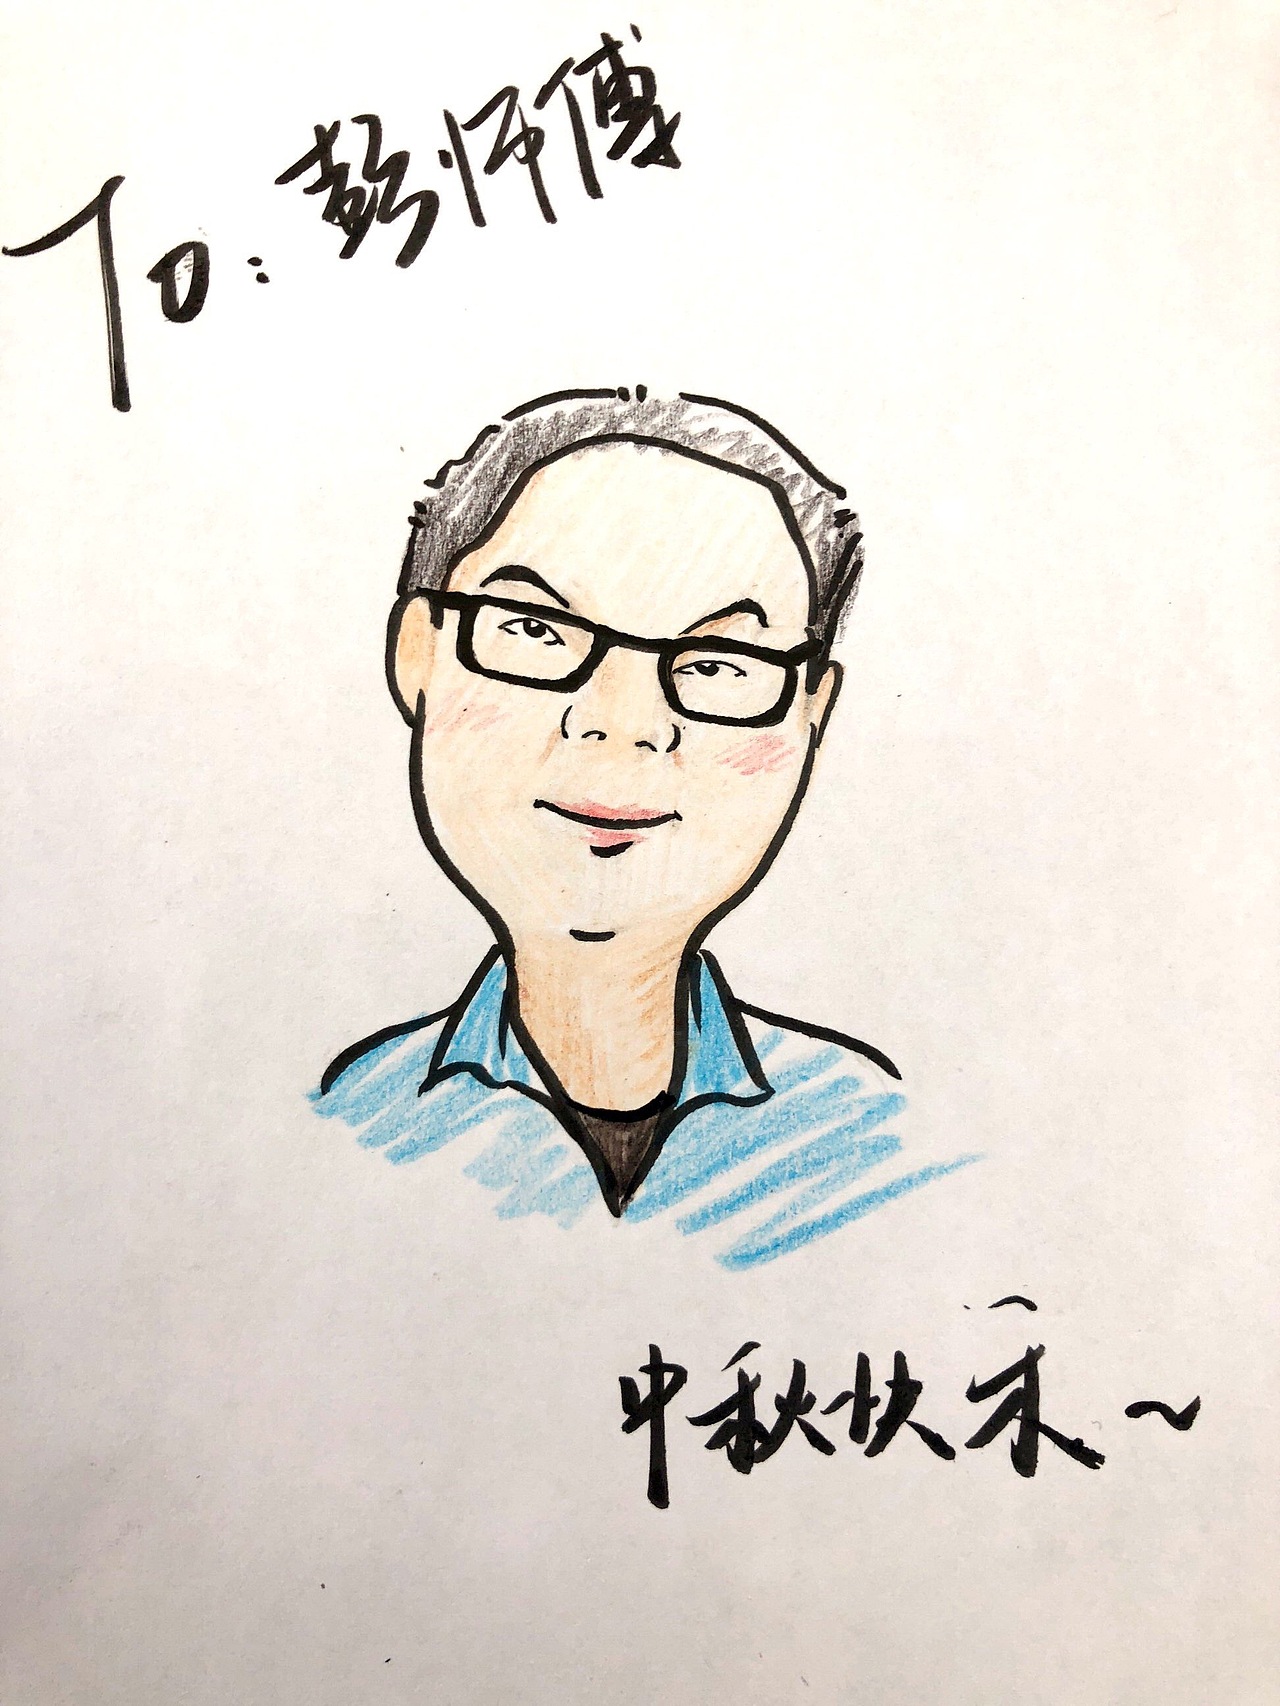 To:彭师傅
中秋快乐~